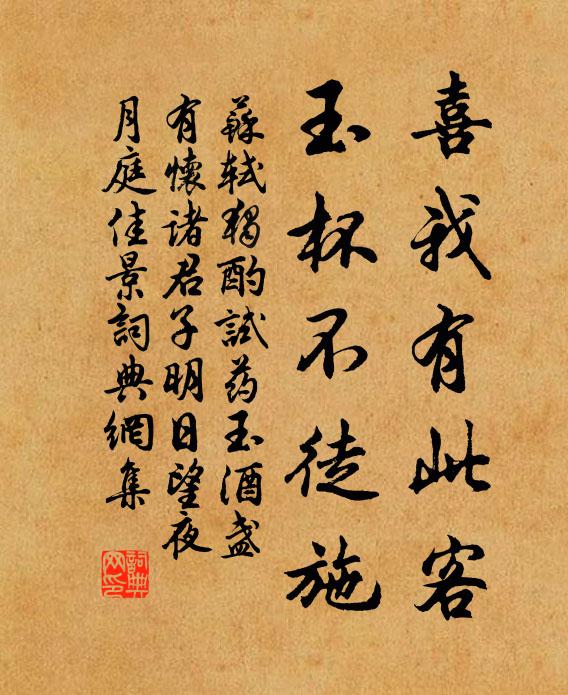 喜我有此客
玉杯不徒施
蘇軾獨酌試药玉酒盞
有懷諸君子明日望夜
月庭佳景詞典網集
詞典网印